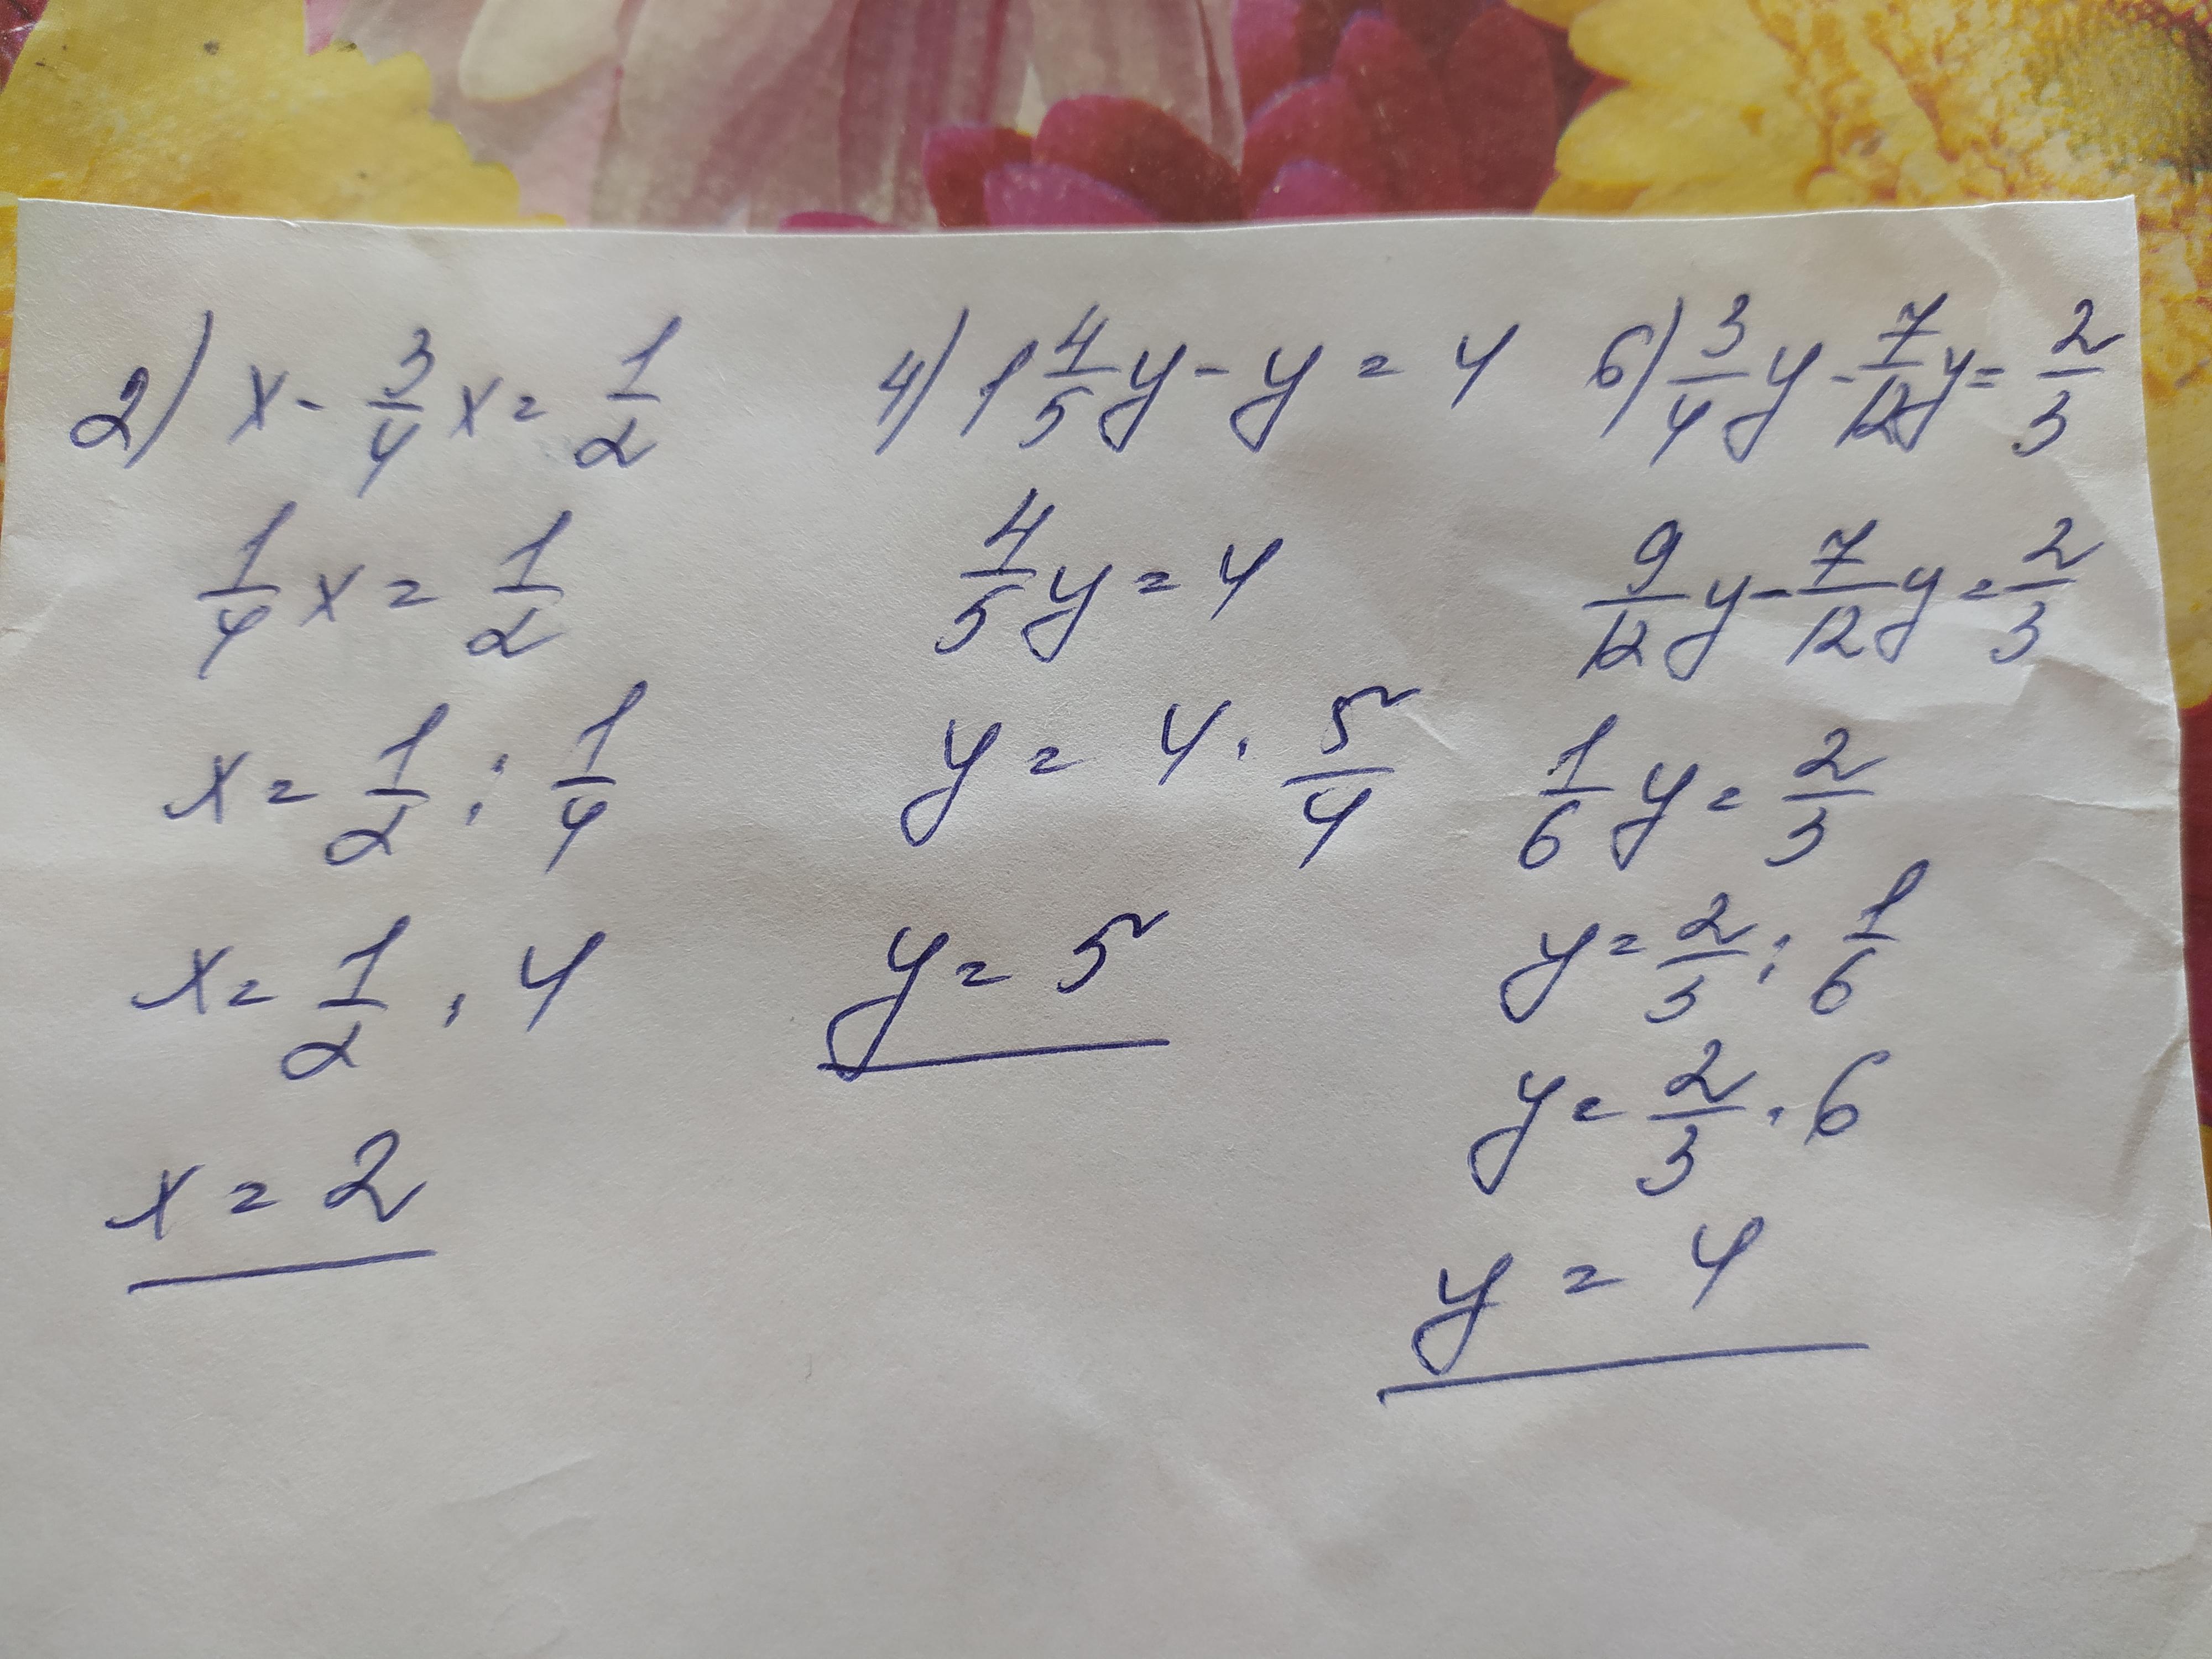 2) x - 3/4 x = 1/2
1/4 x = 1/2
x = 1/2 : 1/4
x = 1/2 · 4
x = 2
4) 1 4/5 y - y = 4
4/5 y = 4
y = 4 · 5/4
y = 5
6) 3/4 y - 7/12 y = 2/3
9/12 y - 7/12 y = 2/3
1/6 y = 2/3
y = 2/3 : 1/6
y = 2/3 · 6
y = 4